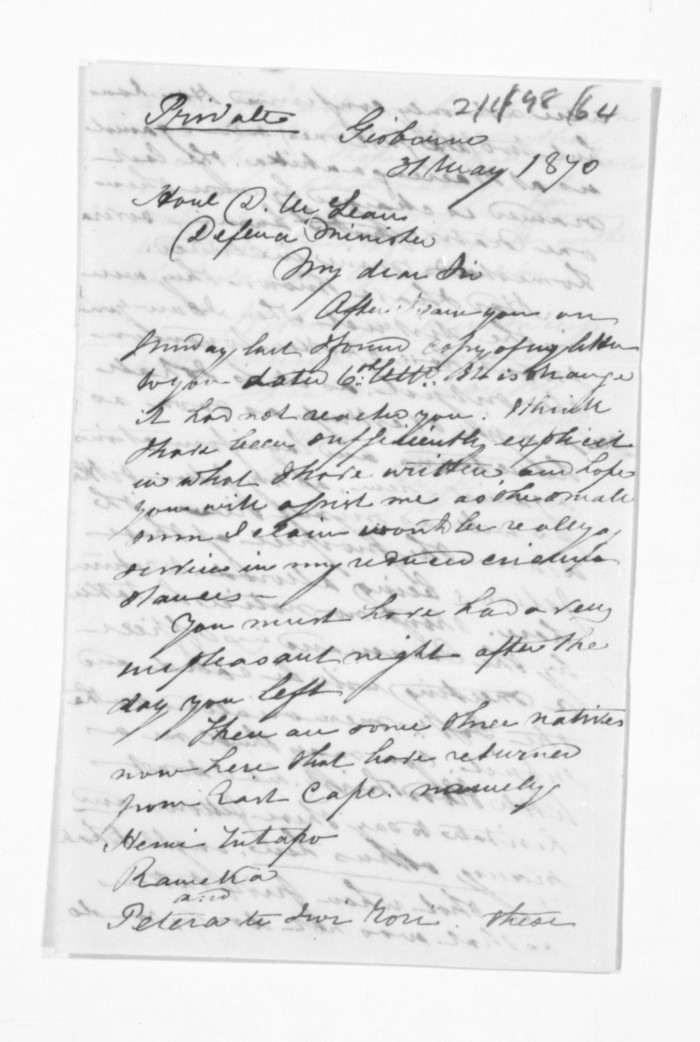 Private
Gisborne
31 May 1870
Honl D. McLean
Defence Minister
My dear Sir
After I saw you on
Sunday last I found copy of my letter
to you dated 6th Ulto. It is strange
it had not reached you. I think
I have been sufficiently explicit
in what I have written and hope
you will assist me as the small
sum I claim would be really a
service in my reduced circum
stances —
You must have had a very
unpleasant night after the
day you left
There are some three natives
now here that have returned
from East Cape. namely
Hemi Tutapo
Rameka
and
Petera te Iwi Tori. these